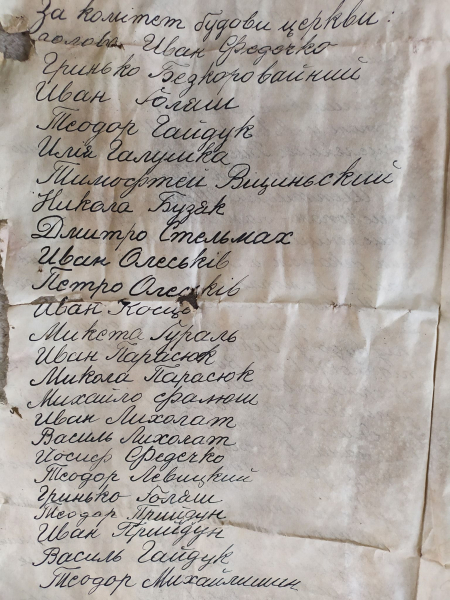 За комітет будови церкви:
голова Иван Федечко
Гринько Безкоровайний
Иван Голяш
Теодор Гайдук
Илія Галушка
Тимофтей Вициньский
Никола Бузяк
Дмитро Стельмах
Иван Олеськів
Петро Олеськів
Иван Косць
Микета Гураль
Иван Парасюк
Микола Парасюк
Михайло Фалюш
Иван Лихолат
Василь Лихолат
Иосиф Федечко
Теодор Левицкий
Гринько Голяш
Теодор Прийдун
Иван Прийдун
Василь Гайдук
Теодор Михайлишин